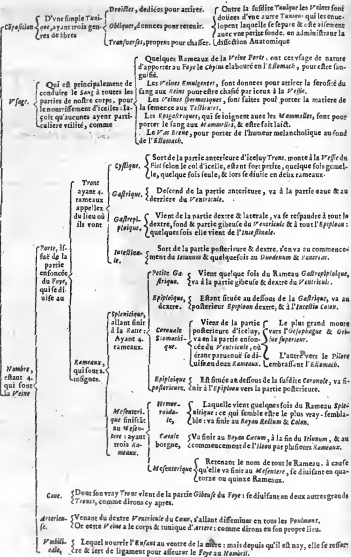 Composition
D'vne simple Tuni-
que, ayant trois gen-
res de fibres
Droittes, dediées pour attirer.
Obliques, donnees pour retenir.
Transuerses, propres pour chasser.
Outre la susdite Tunique les Veines sont
douees d'vne autre Tunique qui les enue-
loppent laquelle se separe & est aisément
avec vne petite sonde, en administrant la
dissection Anatomique
Vsage.
Qui est principalement de
conduire le Sang à toutes les
parties de nostre corps, pour
le nourrissement d'icelles: sa-
çoit qu'aucunes ayent parti-
culiere vtilité, comme
Quelques Rameaux de la Veine Porte, ont cet vsage de nature
d'apporter au Foye le Chyme elabouré en l'Estomach, pour estre san-
guifié.
Les Veines Emulgentes, sont donnees pour attirer la serosité du
sang aux Reins pour estre chassé par iceux à la Vessie.
Les Veines Spermatiques, sont faites pour porter la matiere de
la semence aux Testicules.
Les Epigastriques, qui se ioignent aux les Mammelles, sont pour
porter le sang aux Mammelles, & estre fait laict.
Le Vas Breue, pour porter de l'humeur melancholique au fond
de l'Estomach.
Nombre,
estant 4.
qui sont
la Veine
Porte, is-
sue de la
partie
enfoncée
du Foye,
qui se di-
uise au
Tronc
ayant 4.
rameaux
appellez
du lieu où
ils vont
Cystique,
Sort de la partie anterieure d'iceluy Tronc, monte à la Vessie du
Fiel selon le col d'icelle, estant fort petite, quelque fois gemel-
le, quelque fois seule, & lors se diuise en deux rameaux.
Gastrique.
Descend de la partie anterieure, va à la partie caue & au
derriere du Ventricule.
Gastrepi-
ploique,
Vient de la partie dextre & laterale, va se respandre à tout le
dextre, fond & partie gibeuse du Ventricule & à tout l'Epiploon:
quelques fois elle vient de l'Intestinale.
Intestina-
le,
Sort de la partie posterieure & dextre, s'en va au commence-
ment du Ieiunum & quelquefois au Duodenum & Pancreas.
Rameaux,
qui sont 2.
insignes.
Splenitique,
allant finir
à la Ratte:
Ayant 4.
rameaux.
Petite Ga-
strique.
Vient quelque fois du Rameau Gastrepiploique,
va à la partie gibeuse & dextre du Ventricule.
Epiploique,
dextre.
Estant située au dessous de la Gastrique, va au
posterieur Epiploon dextre, & à l'Intestin Colon.
Coronale
Stomachi-
que.
Vient de la partie
posterieure d'iceluy,
va en la partie enfon-
cée du Ventricule, où
étant paruenuë se di-
uise en deux Rameaux.
Le plus grand monte
vers l'Oesophague & Ori-
fice superieur.
L'autre vers le Pilore
embrassant l'Estomach.
Epiploique
posterieure,
Est située au dessous de la susdite Coronale, va fi-
nir à l'Epiploon vers la partie posterieure.
Mesenteri-
que finissãt
au Mesen-
tere: ayant
trois Ra-
meaux.
Hemor-
roida-
le,
Laquelle vient quelques fois du Rameau Sple-
nitique: ce qui semble estre le plus vray-sembla-
ble: va finir au Boyau Rectum & Colon.
Cæcale
borgne,
Va finir au Boyau Cæcum, à la fin du Ieiunum, & au
commencement de l'Ileon par plusieurs Rameaux.
Mesenterique
Retenant le nom de tout le Rameau, à cause
qu'elle va finir au Mesentere, se diuisant en qua-
torze ou quinze Rameaux.
Caue.
Dont son vray Tronc vient de la partie Gibeuse du Foye: se diuisant en deux autres grands
Troncs, comme dirons cy apres.
Arterieu-
se.
Venant du dextre Ventricule du Cœur, s'allant disseminer en tous les Poulmons.
Or cette Veine a le corps & tunique d'Artere: comme dirons en son propre lieu.
Vmbili-
cale,
Lequel nourrit l'Enfant au ventre de la mere: mais depuis qu'il est nay, elle se resser-
re & sert de ligament pour asseurer le Foye au Nombril.